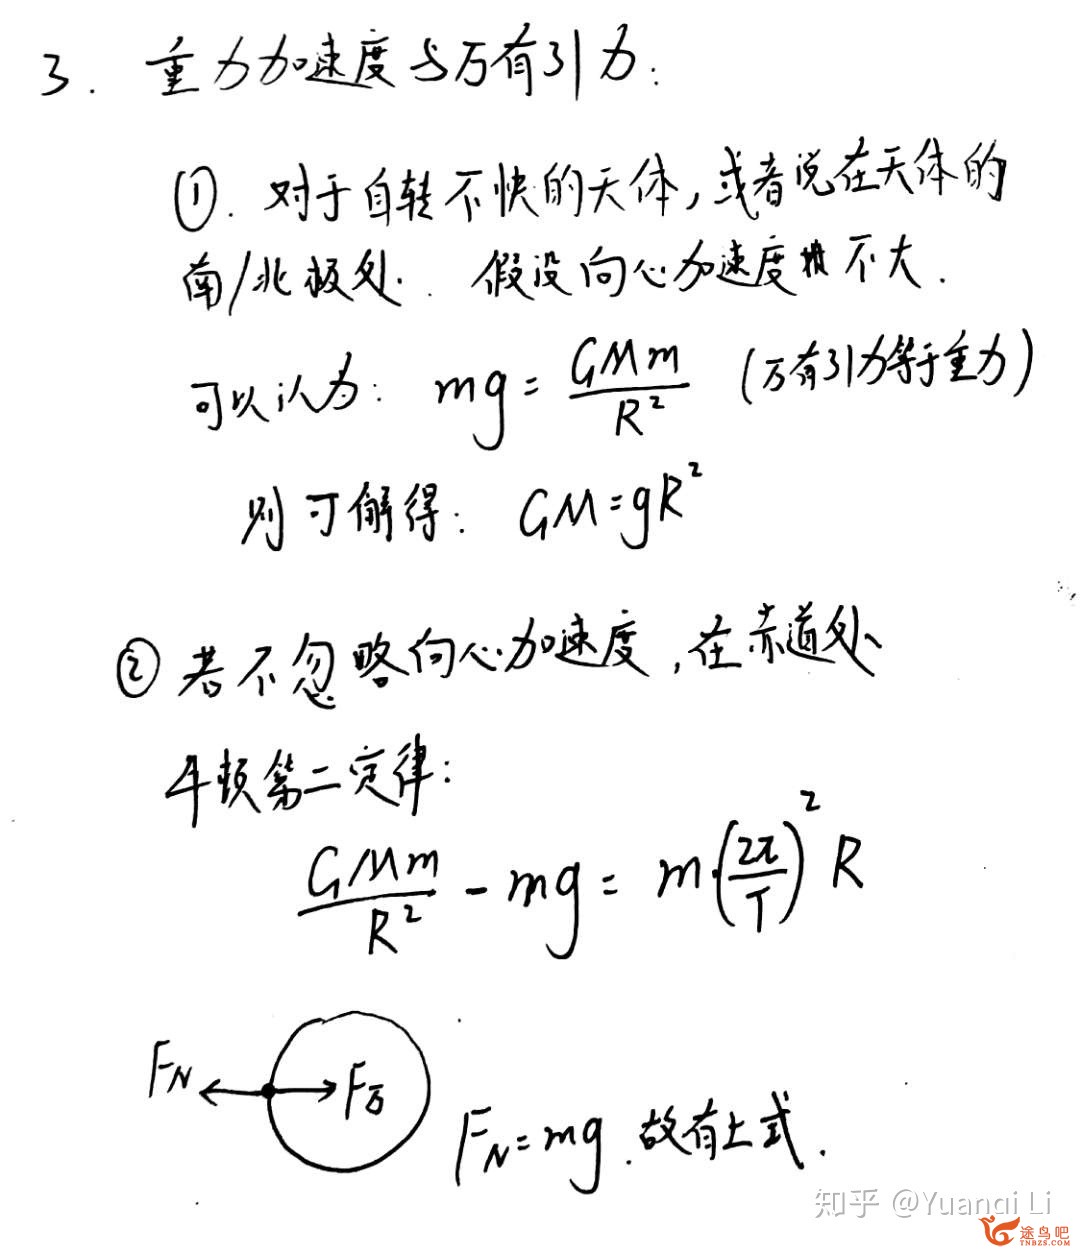 3. 重力加速度与万有引力:
①. 对于自转不快的天体,或者说在天体的
南/北极处. 假设向心加速度 不大.
可以认为: mg = \frac{GMm}{R^2} (万有引力等于重力)
则可解得: GM=gR^2
② 若不忽略向心加速度,在赤道处
牛顿第二定律:
\frac{GMm}{R^2} - mg = m·(\frac{2π}{T})^2 R
F_N F_万
F_N=mg.故有上式.
知乎 @Yuanqi Li
途鸟吧
TNBZS.COM